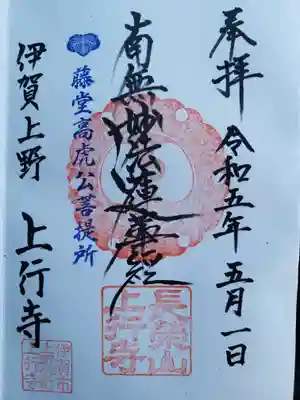 奉拝 令和五年五月一日
南無妙法蓮華経
藤堂高虎公菩提所
伊賀上野 上行寺
長榮山
上行寺